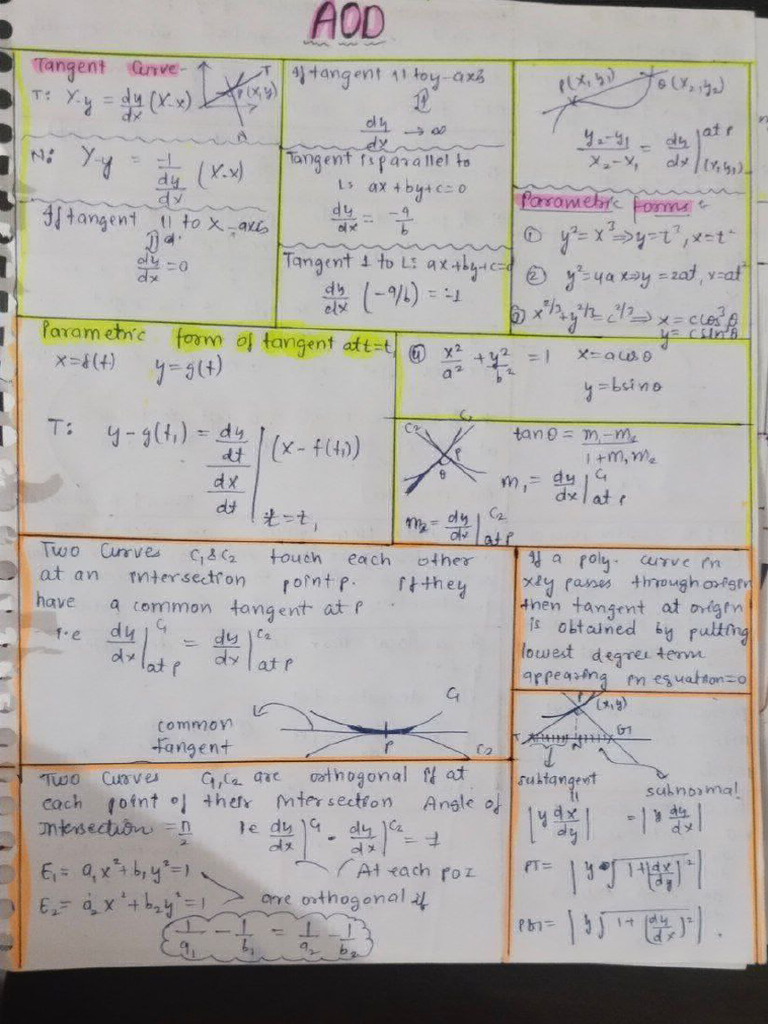 AOD
Tangent Curve-
T: Y-y = dy/dx (X-x)
T
P(x,y)
N: Y-y = -1/(dy/dx) (X-x)
If tangent 11 to x-axis
dy/dx = 0
If tangent 11 to y-axis
dy/dx → ∞
Tangent is parallel to
L: ax+by+c=0
dy/dx = -a/b
Tangent ⊥ to L: ax+by+c=0
dy/dx (-a/b) = -1
P(x, y1)
Q(x2,y2)
y2-y1/x2-x1 = dy/dx] at P (x1,y1)
Parametric forms:
① y²=x³⇒y=t³, x=t²
② y²=4ax⇒y=2at, x=at²
③ x^2/3+y^2/3=c^2/3⇒ x=ccos³θ
y=csin³θ
Parametric form of tangent at t=t1
x=f(t) y=g(t)
T: y-g(t1) = (dy/dt)/(dx/dt) | (x-f(t1))
t=t1
④ x²/a² + y²/b² = 1 x=acosθ
y=bsinθ
C2 C1
P
θ
tanθ = m1-m2/1+m1m2
m1 = dy/dx] C1 at P
m2 = dy/dx] C2 at P
Two Curves C1&C2 touch each other
at an intersection point p. if they
have a common tangent at P
i.e dy/dx] C1 at P = dy/dx] C2 at P
C1
common
tangent
P
C2
If a poly. curve in
x&y passes through origin
then tangent at origin
is obtained by putting
lowest degree term
appearing in equation=0
P (x,y)
T N G1
subtangent
subnormal
|y dx/dy| = |y dy/dx|
PT= |y√1+(dx/dy)²|
PG1= |y√1+(dy/dx)²|.
Two Curves C1,C2 are orthogonal if at
each point of their intersection Angle of
intersection = π/2 ie dy/dx] C1 · dy/dx] C2 = -1
At each POI
E1= a1x²+b1y²=1
E2= a2x²+b2y²=1 are orthogonal if
1/a1 - 1/b1 = 1/a2 - 1/b2